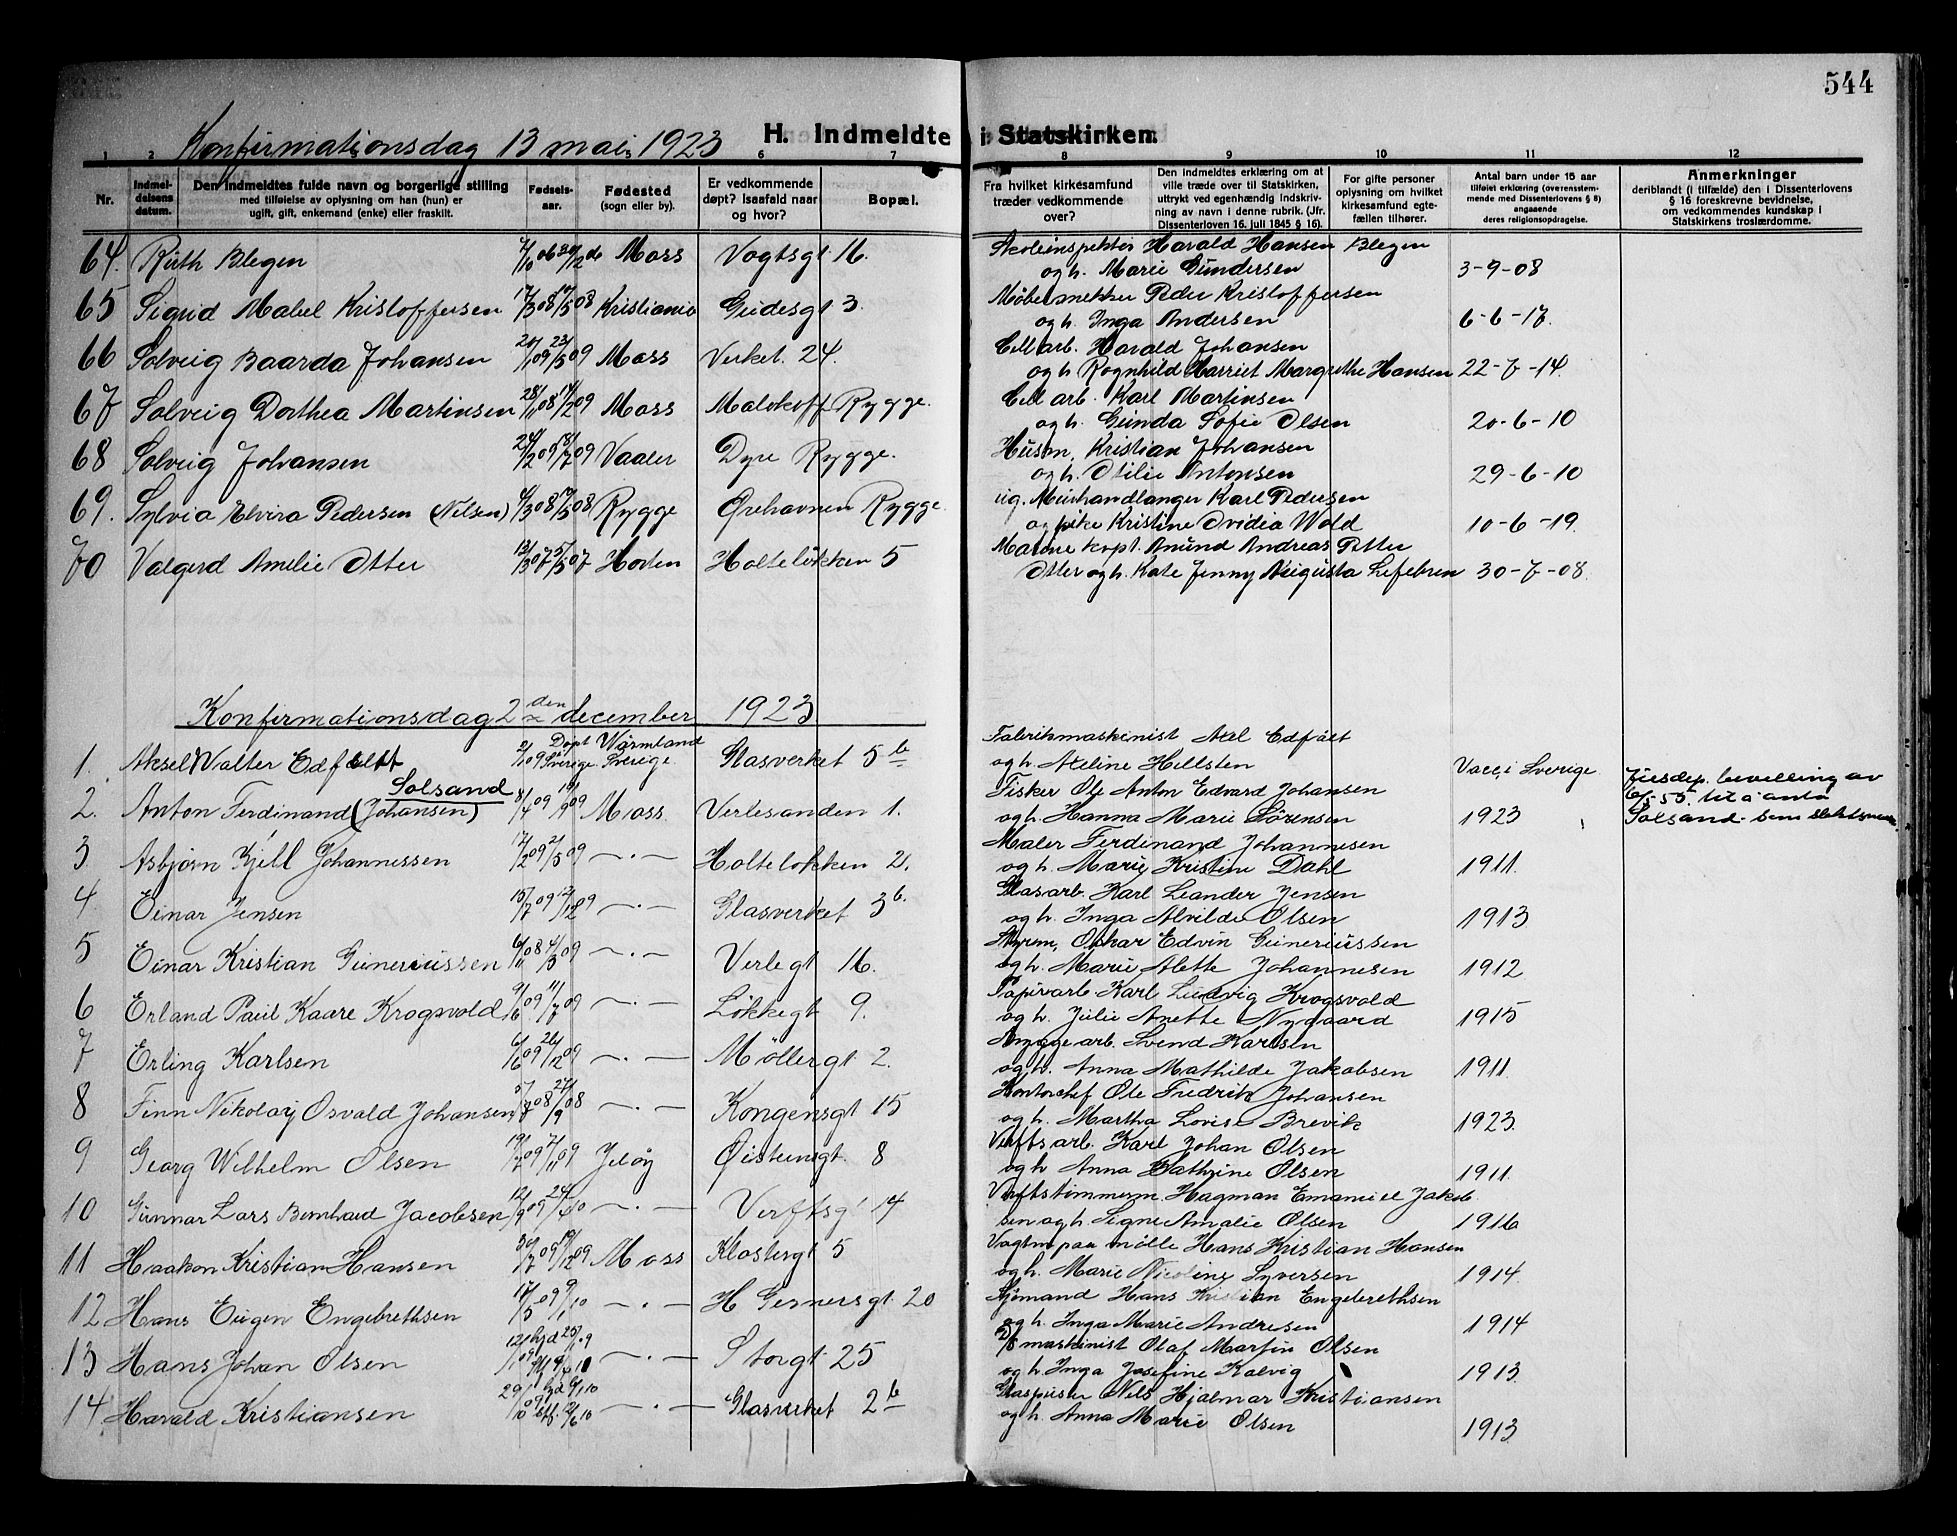 544
Konfirmationsdag 13 mai, 1923
H. Indmeldte i Statskirken.
1 2 6 7 8 9 10 11 12
Nr.
Indmel-
delsens
datum.
Den indmeldtes fulde navn og borgerlige stilling
med tilføielse av oplysning om han (hun) er
ugift, gift, enkemand (enke) eller fraskilt.
Fødsels-
aar.
Fødested
(sogn eller by).
Er vedkommende
døpt? Isaafald naar
og hvor?
Bopæl.
Fra hvilket kirkesamfund
træder vedkommende
over?
Den indmeldtes erklæring om at
ville træde over til Statskirken,
uttrykt ved egenhændig indskriv-
ning av navn i denne rubrik. (Jfr.
Dissenterloven 16. juli 1845 § 16).
For gifte personer
oplysning om hvilket
kirkesamfund egte-
fællen tilhører.
Antal barn under 15 aar
tilføiet erklæring (overensstem-
mende med Dissenterlovens § 8)
angaaende
deres religionsopdragelse.
Anmerkninger
deriblandt (i tilfælde) den i Dissenterlovens
§ 16 foreskrevne bevidnelse,
om vedkommendes kundskap i
Statskirkens troslærdomme.
64. Ruth Blegen Moss Vogtsgt 16. Skoleinspektör Harald Hansen Blegen
og h. Marie Gundersen 3-9-08
65 Sigrid Mabel Kristoffersen 17/3 08 17/5 08 Kristiania Gudesgt 3. Møbelsnekker Peder Kristoffersen
og h. Inga Andersen 6-6-17.
66 Solveig Baarda Johansen 20/1 09 23/5 09 Moss Verket 24. Cell arb. Harald Johansen
og h Ragnhild Harriet Margrethe Hansen 22-7-14.
67 Solveig Dorthea Martinsen 28/11 08 14/2 09 Moss Malakoff Rygge. Cell arb. Karl Martinsen
og h. Gunda Sofie Olsen 20-6-10
68 Solveig Johansen 24/2 09 18/7 09 Vaaler Dyre Rygge. Husm, Kristian Johansen
og h. Otilie Antonsen 29-6-10
69. Sylvia Elvira Pedersen (Nilsen) Rygge Ørehavnen Rygge. ug. Murhandlanger Karl Pedersen
og pike Kristine Ovidia Wold 10-6-19.
70 Valgerd Amelie Otter 13/3 07 5/5 07 Horten Holteløkken 5 Marine kapt. Anund Andreas Petter
Otter og h. Kate Jenny Augusta Lefebren 30-7-08.
Konfirmationsdag 2 den december 1923
1. Aksel Walter Edfeldt 2/10 09 Døpt Sverige Wärmland Sverige Glasverket 5 b Fabrikmaskinist Axel Edfält
og h. Axeline Hellsten Vacc. i Sverige
2. Anton Ferdinand (Johansen) Solsand 8/4 09 Moss Verlesanden 1. Fisker Ole Anton Edvard Johansen
og h. Hanna Marie Sørensen 1923
Jusdep. bevilling av
6/5-55. til å anta
Solsand som slektsnavn.
3 Asbjørn Kjell Johannessen 17/2 09 2/5 09 —.— Holteløkken 2. Maler Ferdinand Johannesen
og h. Marie Kristine Dahl 1911.
4 Einar Jensen 15/7 09 12/12 09 —.— Glasverket 3 b. Glasarb. Karl Leander Jensen
og h. Inga Alvilde Olsen 1913
5 Einar Kristian Guneriussen 6/11 08 —.— Verlegt 16. Styrm, Oskar Edvin Guneriussen
og h. Marie Alette Johannesen 1912
6 Erland Paul Kaare Krogsvold 9/6 09 11/7 09 —.— Løkkegt 9. Papirarb Karl Ludvig Krogsvold
og h. Julie Anette Nygaard 1915
7 Erling Karlsen 6/10 09 26/12 09 —.— Møllergt 2. Bryggearb. Svend Karlsen
og h. Anna Mathilde Jakobsen 1911.
8 Finn Nikolay Osvald Johansen —.— Kongensgt 15 Kontorchef Ole Fredrik Johansen
og h. Martha Lovise Brevik 1923.
9 Georg Wilhelm Olsen 19/7 09 7/11 09 Jeløy Øistensgt. 8 Verftsarb. Karl Johan Olsen
og h Anna Kathrine Olsen 1911.
10 Gunnar Lars Bernhard Jacobsen 12/9 09 24/4 10 —.— Verftsgt 14 Verftstømmerm. Hagman Emanuel Jakob-
sen og h. Signe Amalie Olsen 1916
11 Haakon Kristian Hansen 30/7 09 19/12 09 Moss Klostergt 5 Vagtm paa mölle Hans Kristian Hansen
og h. Marie Nicoline Syversen 1914.
12 Hans Eugen Engebrethsen 17/5 09 9/1 10 —.— H Gernersgt. 20 Sjømand Hans Kristian Engebrethsen
og h. Inga Marie Andresen 1914
13 Hans Johan Olsen —.— Storgt 25 D/S maskinist Olaf Martin Olsen
og h Inga Josefine Kalvig 1913.
14. Harald Kristiansen —.— Glasverket 2 b Glaspuster Nils Hjalmar Kristiansen
og h. Anna Marie Olsen 1913